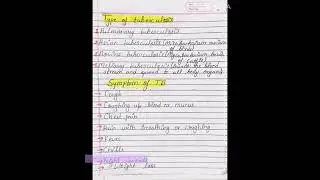 Type of tuberculosis
Pulmonary tuberculosis
Avian tuberculosis (Mycobacterium avium
of birds)
Bovine tuberculosis (Mycobacterium bovis
of cattle)
Miliary tuberculosis (invade the blood
stream and spread to all body organs)
Symptom of T.B
Cough
Coughing up blood or mucus
Chest pain
Pain with breathing or coughing
Fever
Chills
Weight loss